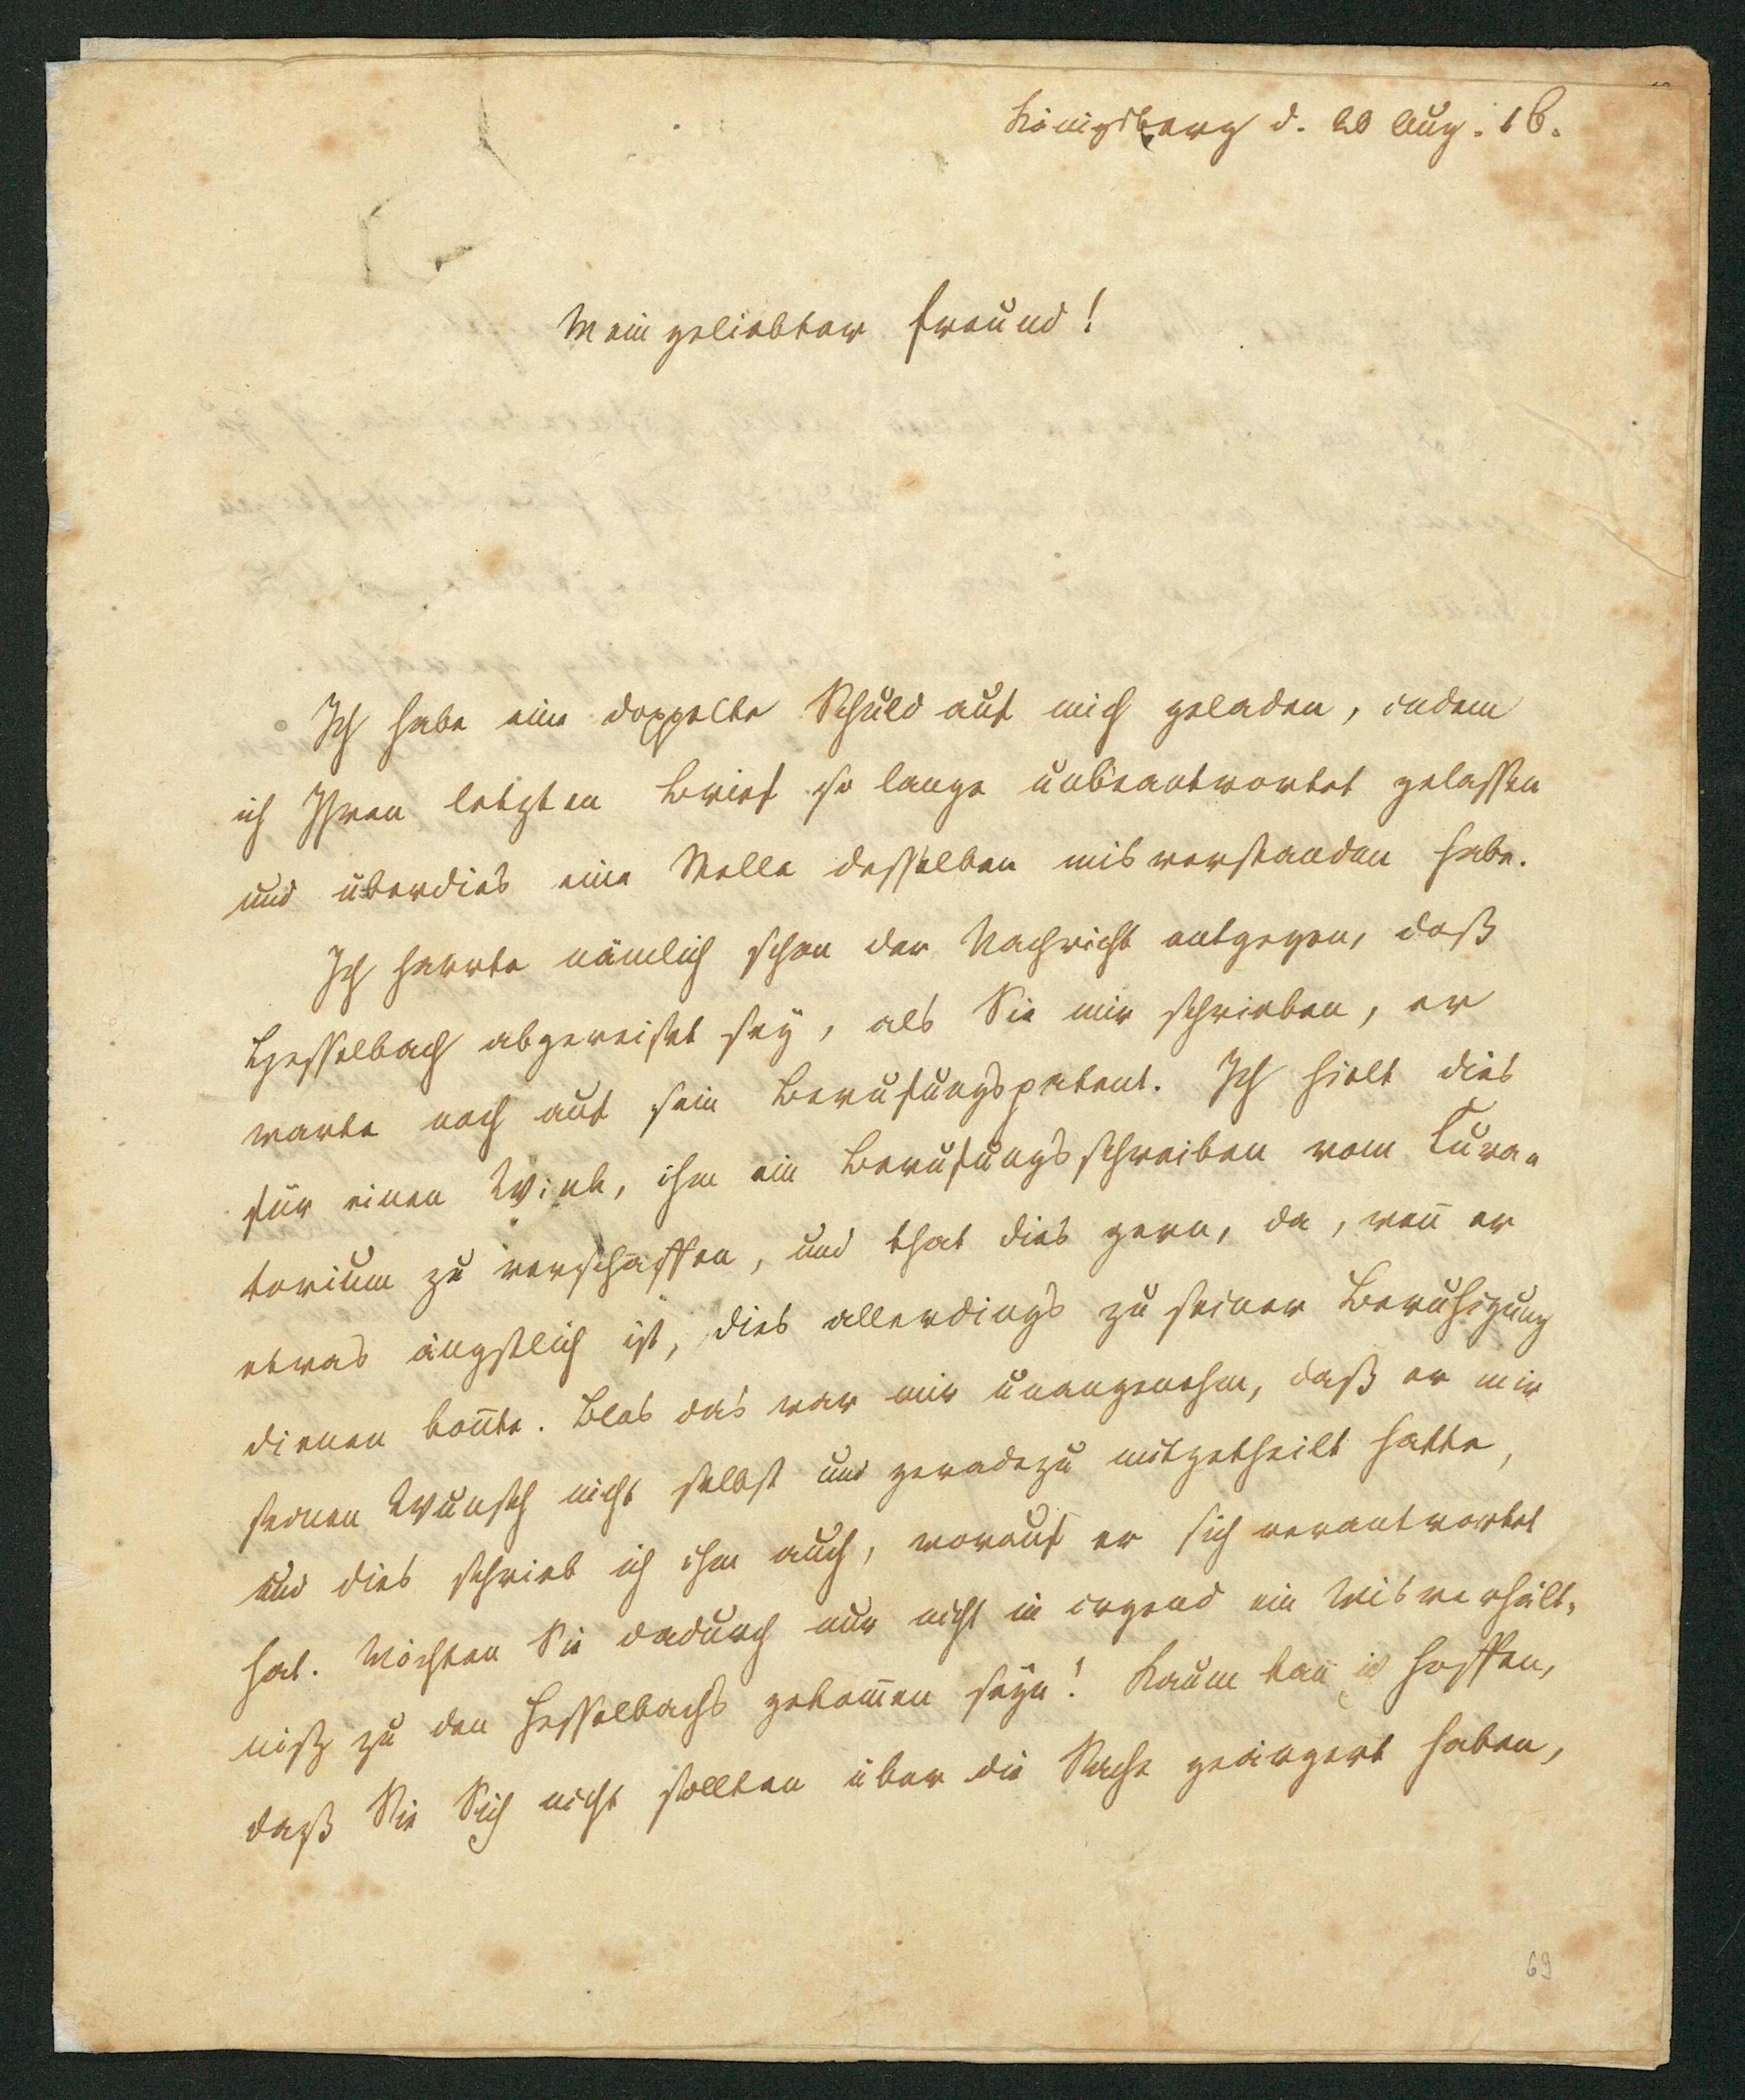 Königsberg d. 20 Aug. 16.
Mein geliebter Freund!
Ich habe eine doppelte Schuld auf mich geladen, indem
ich Ihren letzten Brief so lange unbeantwortet gelassen
und überdies eine Stelle desselben misverstanden habe.
Ich harrte nämlich schon der Nachricht entgegen, daß
Hesselbach abgereiset sey, als Sie mir schrieben, er
warte noch auf sein Berufungspatent. Ich hielt dies
für einen Wink, ihm ein Berufungsschreiben vom Cura-
torium zu verschaffen, und that dies gern, da, weñ er
etwas ängstlich ist, dies allerdings zu seiner Beruhigung
dienen koñte. Blos das war mir unangenehm, daß er mir
seinen Wunsch nicht selbst und geradezu mitgetheilt hatte,
und dies schrieb ich ihm auch, worauf er sich verantwortet
hat. Möchten Sie dadurch nur nicht in irgend ein Misverhält-
niß zu den Hesselbachs gekom̄en seyn! Kaum kañ ich hoffen,
daß Sie Sich nicht sollten über die Sache geärgert haben,
69